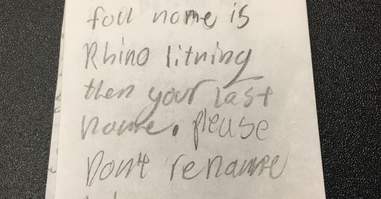 foul name is
Rhino litning
then your Last
name. please
Dont rename